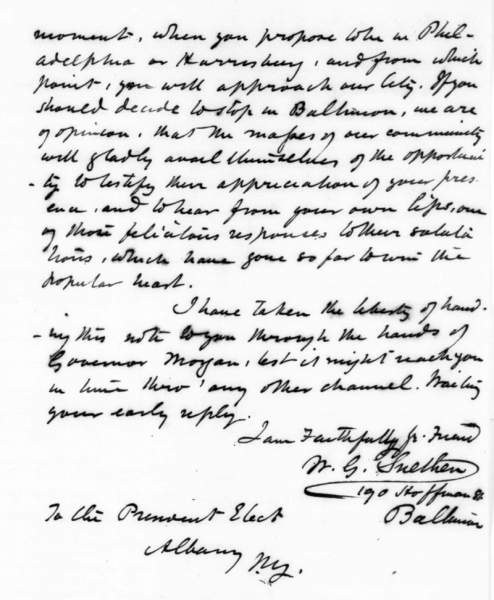 moment, when you propose to be in Phil-
adelphia or Harrisburg, and from which
point, you will approach our City. If you
should decide to stop in Baltimore, we are
of opinion, that the masses of our community
will gladly avail themselves of the opportuni
-ty to testify their appreciation of your pres-
ence, and to hear from your own lips, one
of those felicitous responses to their saluta
tions, which have gone so far to win the
popular heart.
I have taken the liberty of hand-
-ing this note to you through the hands of
Governor Morgan, lest it might reach you
in time thro' any other channel. Waiting
your early reply.
I am Faithfully Yr. Friend
W. G. Snethen
190 Hoffman St.
Baltimore
To the President Elect
Albany N.Y.